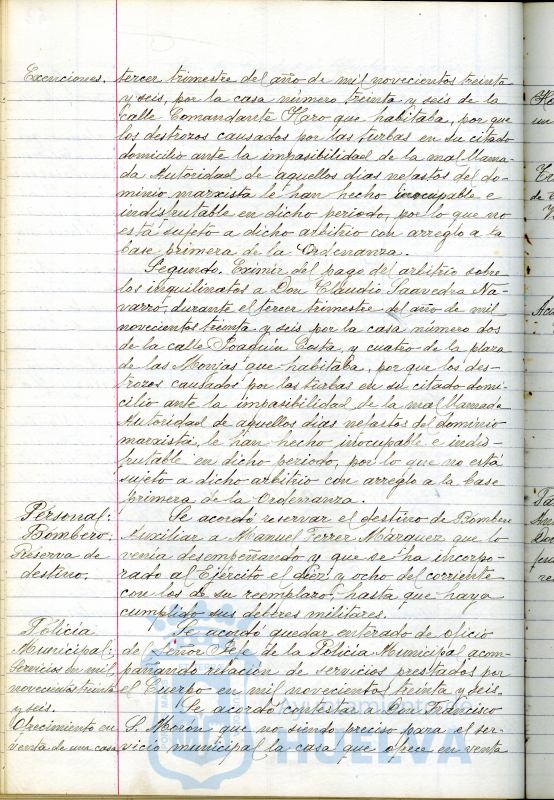 Exenciones. tercer trimestre del año de mil novecientos treinta
y seis, por la casa número treinta y seis de la
calle Comandante Haro que habitaba, por que
los destrozos causados por las turbas en su citado
domicilio ante la impasibilidad de la mal llama-
da Autoridad de aquellos días nefastos del do-
minio marxista le han hecho inocupable e
indisfrutable en dicho periodo, por lo que no
está sujeto a dicho arbitrio con arreglo a la
base primera de la Ordenanza.
Segundo. Eximir del pago del arbitrio sobre
los inquilinatos a Don Claudio Saavedra Na-
varro, durante el tercer trimestre del año de mil
novecientos treinta y seis por la casa número dos
de la calle Joaquín Costa, y cuatro de la plaza
de las Monjas que habitaba, por que los des-
trozos causados por las turbas en su citado domi-
cilio ante la impasibilidad de la mal llamada
Autoridad de aquellos días nefastos del dominio
marxista, le han hecho inocupable e indis-
frutable en dicho periodo, por lo que no está
sujeto a dicho arbitrio con arreglo a la base
primera de la Ordenanza.
Personal: Se acordó reservar el destino de Bombero
Bombero: Auxiliar a Manuel Ferrer Márquez que lo
Reserva de venía desempeñando y que se ha incorpo-
destino. rado al Ejército el diez y ocho del corriente
con los de su reemplazo, hasta que haya
cumplido sus deberes militares.
Policía Se acordó quedar enterado de oficio
Municipal: de Señor Jefe de la Policía Municipal acom-
Servicios en mil pañando relación de servicios prestados por
novecientos treinta el Cuerpo en mil novecientos treinta y seis.
y seis. Se acordó contestar a Don Francisco
Ofrecimiento en S. Morón que no siendo preciso para el ser-
venta de una casa vicio municipal la casa que ofrece en venta
HUELVA